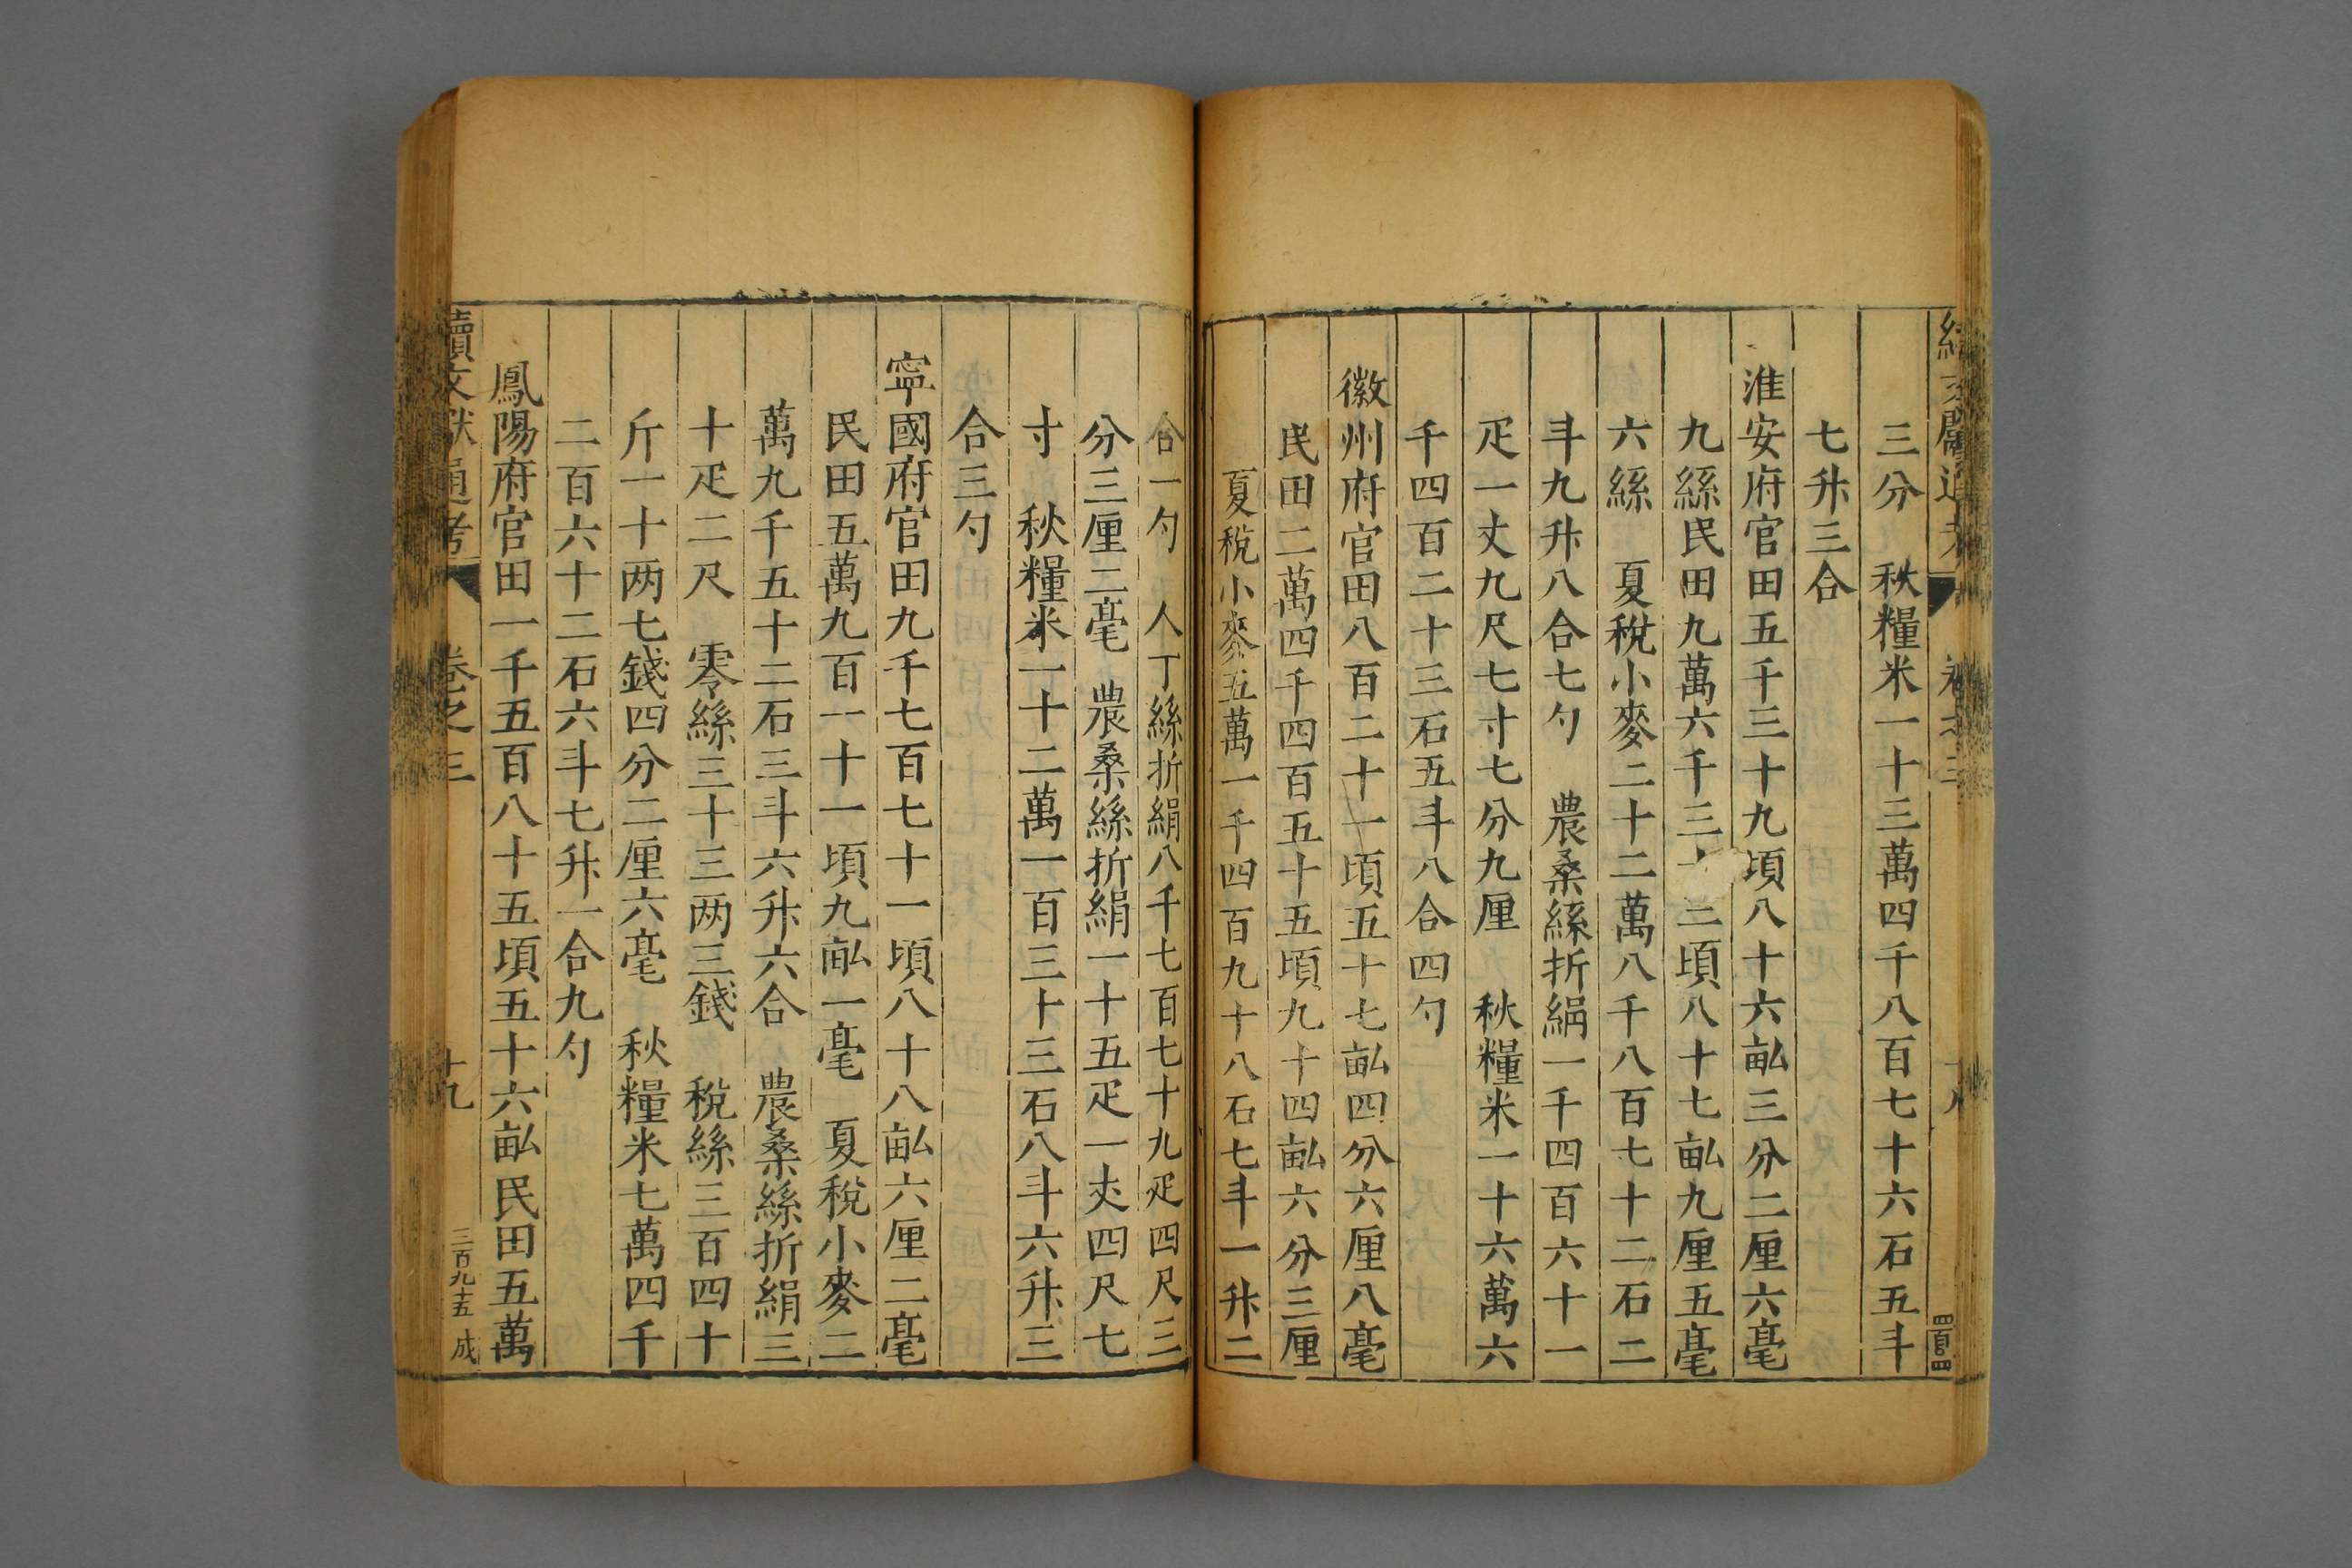 三分　秋糧米一十三萬四千八百七十六石五斗
七升三合
淮安府官田五千三十九頃八十六畝三分二厘六毫
九絲民田九萬六千三十三頃八十七畝九厘五毫
六絲　夏稅小麥二十二萬八千八百七十二石二
斗九升八合七勺　農桑絲折絹一千四百六十一
疋一丈九尺七寸七分九厘　秋糧米一十六萬六
千四百二十三石五斗八合四勺
徽州府官田八百二十一頃五十七畝四分六厘八毫
民田二萬四千四百五十五頃九十四畝六分三厘
夏稅小麥五萬一千四百九十八石七斗一升二
合一勺　人丁絲折絹八千七百七十九疋四尺三
分三厘二毫　農桑絲折絹一十五疋一丈四尺七
寸　秋糧米一十二萬一百三十三石八斗六升三
合三勺
寧國府官田九千七百七十一頃八十八畝六厘二毫
民田五萬九百一十一頃九畝一毫　夏稅小麥二
萬九千五十二石三斗六升六合　農桑絲折絹三
十疋二尺　零絲三十三两三錢　稅絲三百四十
斤一十两七錢四分二厘六毫　秋糧米七萬四千
二百六十二石六斗七升一合九勺
鳳陽府官田一千五百八十五頃五十六畝民田五萬
續文獻通考　卷之三　十九　三百九十五　成